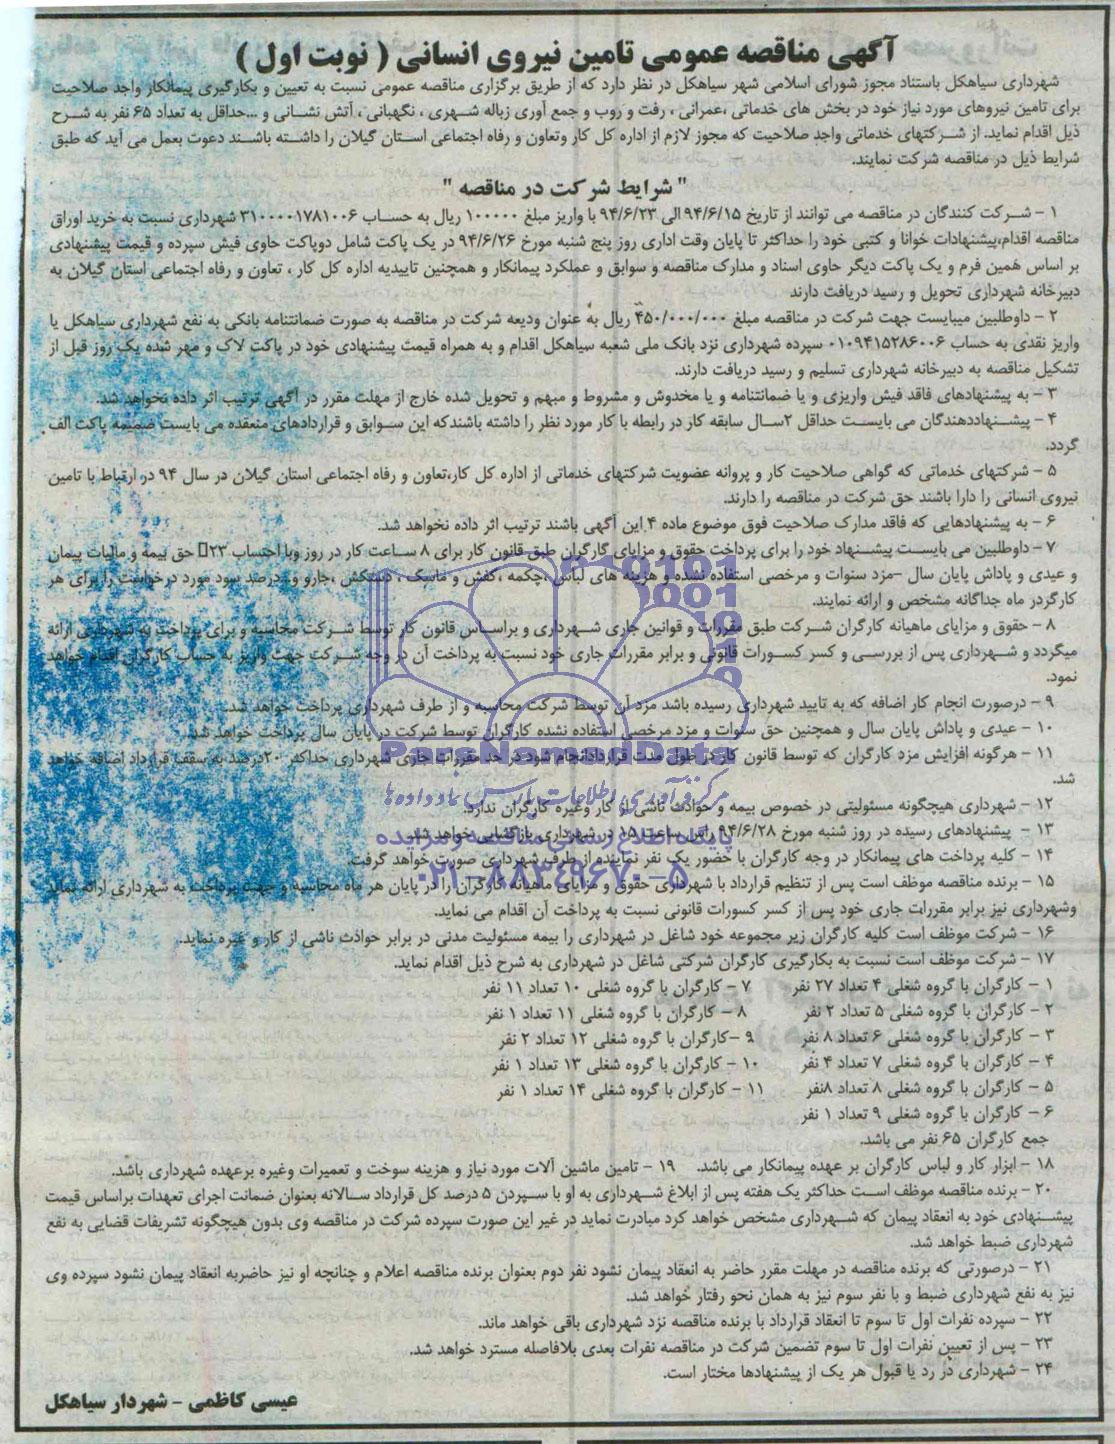 آگهی مناقصه عمومی تامین نیروی انسانی ( نوبت اول )
شهرداری سیاهکل باستناد مجوز شورای اسلامی شهر سیاهکل در نظر دارد که از طریق برگزاری مناقصه عمومی نسبت به تعیین و بکارگیری پیمانکار واجد صلاحیت
برای تامین نیروهای مورد نیاز خود در بخش های خدماتی ،عمرانی ، رفت و روب و جمع آوری زباله شهری ، نگهبانی ، آتش نشانی و ...حداقل به تعداد ۶۵ نفر به شرح
ذیل اقدام نماید. از شرکتهای خدماتی واجد صلاحیت که مجوز لازم از اداره کل کار وتعاون و رفاه اجتماعی استان گیلان را داشته باشند دعوت بعمل می آید که طبق
شرایط ذیل در مناقصه شرکت نمایند.
" شرایط شرکت در مناقصه "
۱ - شرکت کنندگان در مناقصه می توانند از تاریخ ۹۴/۶/۱۵الی ۹۴/۶/۲۳ با واریز مبلغ ۱۰۰۰۰۰ ریال به حساب ۳۱۰۰۰۰۱۷۸۱۰۰۶ شهرداری نسبت به خرید اوراق
مناقصه اقدام،پیشنهادات خوانا و کتبی خود را حداکثر تا پایان وقت اداری روز پنج شنبه مورخ ۹۴/۶/۲۶ در یک پاکت شامل دوپاکت حاوی فیش سپرده و قیمت پیشنهادی
بر اساس همین فرم و یک پاکت دیگر حاوی اسناد و مدارک مناقصه و سوابق و عملکرد پیمانکار و همچنین تاییدیه اداره کل کار ، تعاون و رفاه اجتماعی استان گیلان به
دبیرخانه شهرداری تحویل و رسید دریافت دارند
۲ - داوطلبین میبایست جهت شرکت در مناقصه مبلغ ۴۵۰/۰۰۰/۰۰۰ ریال به عنوان ودیعه شرکت در مناقصه به صورت ضمانتنامه بانکی به نفع شهرداری سیاهکل یا
واریز نقدی به حساب ۰۱۰۹۴۱۵۲۸۶۰۰۶ سپرده شهرداری نزد بانک ملی شعبه سیاهکل اقدام و به همراه قیمت پیشنهادی خود در پاکت لاک و مهر شده یک روز قبل از
تشکیل مناقصه به دبیرخانه شهرداری تسلیم و رسید دریافت دارند.
۳ - به پیشنهادهای فاقد فیش واریزی و یا ضمانتنامه و یا مخدوش و مشروط و مبهم و تحویل شده خارج از مهلت مقرر در آگهی ترتیب اثر داده نخواهد شد.
۴ - پیشنهاددهندگان می بایست حداقل ۲سال سابقه کار در رابطه با کار مورد نظر را داشته باشندکه این سوابق و قراردادهای منعقده می بایست ضمیمه پاکت الف
گردد.
۵ - شرکتهای خدماتی که گواهی صلاحیت کار و پروانه عضویت شرکتهای خدماتی از اداره کل کار،تعاون و رفاه اجتماعی استان گیلان در سال ۹۴ در ارتباط با تامین
نیروی انسانی را دارا باشند حق شرکت در مناقصه را دارند.
۶ - به پیشنهادهایی که فاقد مدارک صلاحیت فوق موضوع ماده ۴ این آگهی باشند ترتیب اثر داده نخواهد شد.
۷ - داوطلبین می بایست پیشنهاد خود را برای پرداخت حقوق و مزایای کارگران طبق قانون کار برای ۸ ساعت کار در روز وبا احتساب ۲۳□ حق بیمه و مالیات پیمان
و عیدی و پاداش پایان سال -مزد سنوات و مرخصی استفاده نشده و هزینه های لباس ،چکمه ،کفش و ماسک ، دستکش ،جارو و درصد سود مورد درخواست را برای هر
کارگردر ماه جداگانه مشخص و ارائه نمایند.
۸ - حقوق و مزایای ماهیانه کارگران شرکت طبق مقررات و قوانین جاری شهرداری و براساس قانون کار توسط شرکت محاسبه و برای پرداخت به شهرداری ارائه
میگردد و شهرداری پس از بررسی و کسر کسورات قانونی و برابر مقررات جاری خود نسبت به پرداخت آن در وجه شرکت جهت واریز به حساب کارگران اقدام خواهد
نمود.
۹ - درصورت انجام کار اضافه که به تایید شهرداری رسیده باشد مزد آن توسط شرکت محاسبه و از طرف شهرداری پرداخت خواهد شد.
۱۰ - عیدی و پاداش پایان سال و همچنین حق سنوات و مزد مرخصی استفاده نشده کارگران توسط شرکت در پایان سال پرداخت خواهد شد.
۱۱ - هرگونه افزایش مزد کارگران که توسط قانون کار در طول مدت قراردادانجام شود در حد مقررات جاری شهرداری حداکثر ۲۰درصد به سقف قرارداد اضافه خواهد
شد.
۱۲ - شهرداری هیچگونه مسئولیتی در خصوص بیمه و حوادث ناشی از کار وغیره کارگران ندارد.
۱۳ - پیشنهادهای رسیده در روز شنبه مورخ ۹۴/۶/۲۸ راس ساعت ۱۵ در شهرداری بازگشایی خواهد شد.
۱۴ - کلیه پرداخت های پیمانکار در وجه کارگران با حضور یک نفر نماینده از طرف شهرداری صورت خواهد گرفت.
۱۵ - برنده مناقصه موظف است پس از تنظیم قرارداد با شهرداری حقوق و مزایای ماهیانه کارگران را در پایان هر ماه محاسبه و جهت پرداخت به شهرداری ارائه نماید
وشهرداری نیز برابر مقررات جاری خود پس از کسر کسورات قانونی نسبت به پرداخت آن اقدام می نماید.
۱۶ - شرکت موظف است کلیه کارگران زیر مجموعه خود شاغل در شهرداری را بیمه مسئولیت مدنی در برابر حوادث ناشی از کار و غیره نماید.
۱۷ - شرکت موظف است نسبت به بکارگیری کارگران شرکتی شاغل در شهرداری به شرح ذیل اقدام نماید.
۱ - کارگران با گروه شغلی ۴ تعداد ۲۷ نفر ۷ - کارگران با گروه شغلی ۱۰ تعداد ۱۱ نفر
۲ - کارگران با گروه شغلی ۵ تعداد ۲ نفر ۸ - کارگران با گروه شغلی ۱۱ تعداد ۱ نفر
۳ - کارگران با گروه شغلی ۶ تعداد ۸ نفر ۹ -کارگران با گروه شغلی ۱۲ تعداد ۲ نفر
۴ - کارگران با گروه شغلی ۷ تعداد ۴ نفر ۱۰ - کارگران با گروه شغلی ۱۳ تعداد ۱ نفر
۵ - کارگران با گروه شغلی ۸ تعداد ۸نفر ۱۱ - کارگران با گروه شغلی ۱۴ تعداد ۱ نفر
۶ - کارگران با گروه شغلی ۹ تعداد ۱ نفر
جمع کارگران ۶۵ نفر می باشد.
۱۸ - ابزار کار و لباس کارگران بر عهده پیمانکار می باشد. ۱۹ - تامین ماشین آلات مورد نیاز و هزینه سوخت و تعمیرات وغیره برعهده شهرداری باشد.
۲۰ - برنده مناقصه موظف است حداکثر یک هفته پس از ابلاغ شهرداری به او با سپردن ۵ درصد کل قرارداد سالانه بعنوان ضمانت اجرای تعهدات براساس قیمت
پیشنهادی خود به انعقاد پیمان که شهرداری مشخص خواهد کرد مبادرت نماید در غیر این صورت سپرده شرکت در مناقصه وی بدون هیچگونه تشریفات قضایی به نفع
شهرداری ضبط خواهد شد.
۲۱ - درصورتی که برنده مناقصه در مهلت مقرر حاضر به انعقاد پیمان نشود نفر دوم بعنوان برنده مناقصه اعلام و چنانچه او نیز حاضربه انعقاد پیمان نشود سپرده وی
نیز به نفع شهرداری ضبط و با نفر سوم نیز به همان نحو رفتار خواهد شد.
۲۲ - سپرده نفرات اول تا سوم تا انعقاد قرارداد با برنده مناقصه نزد شهرداری باقی خواهد ماند.
۲۳ - پس از تعیین نفرات اول تا سوم تضمین شرکت در مناقصه نفرات بعدی بلافاصله مسترد خواهد شد.
۲۴ - شهرداری در رد یا قبول هر یک از پیشنهادها مختار است.
عیسی کاظمی - شهردار سیاهکل
ParsNamadData
مرکز فرآوری اطلاعات پارس نماد داده ها
پایگاه اطلاع رسانی مناقصه و مزایده
۰۲۱-۸۸۳۴۹۶۷۰-۵